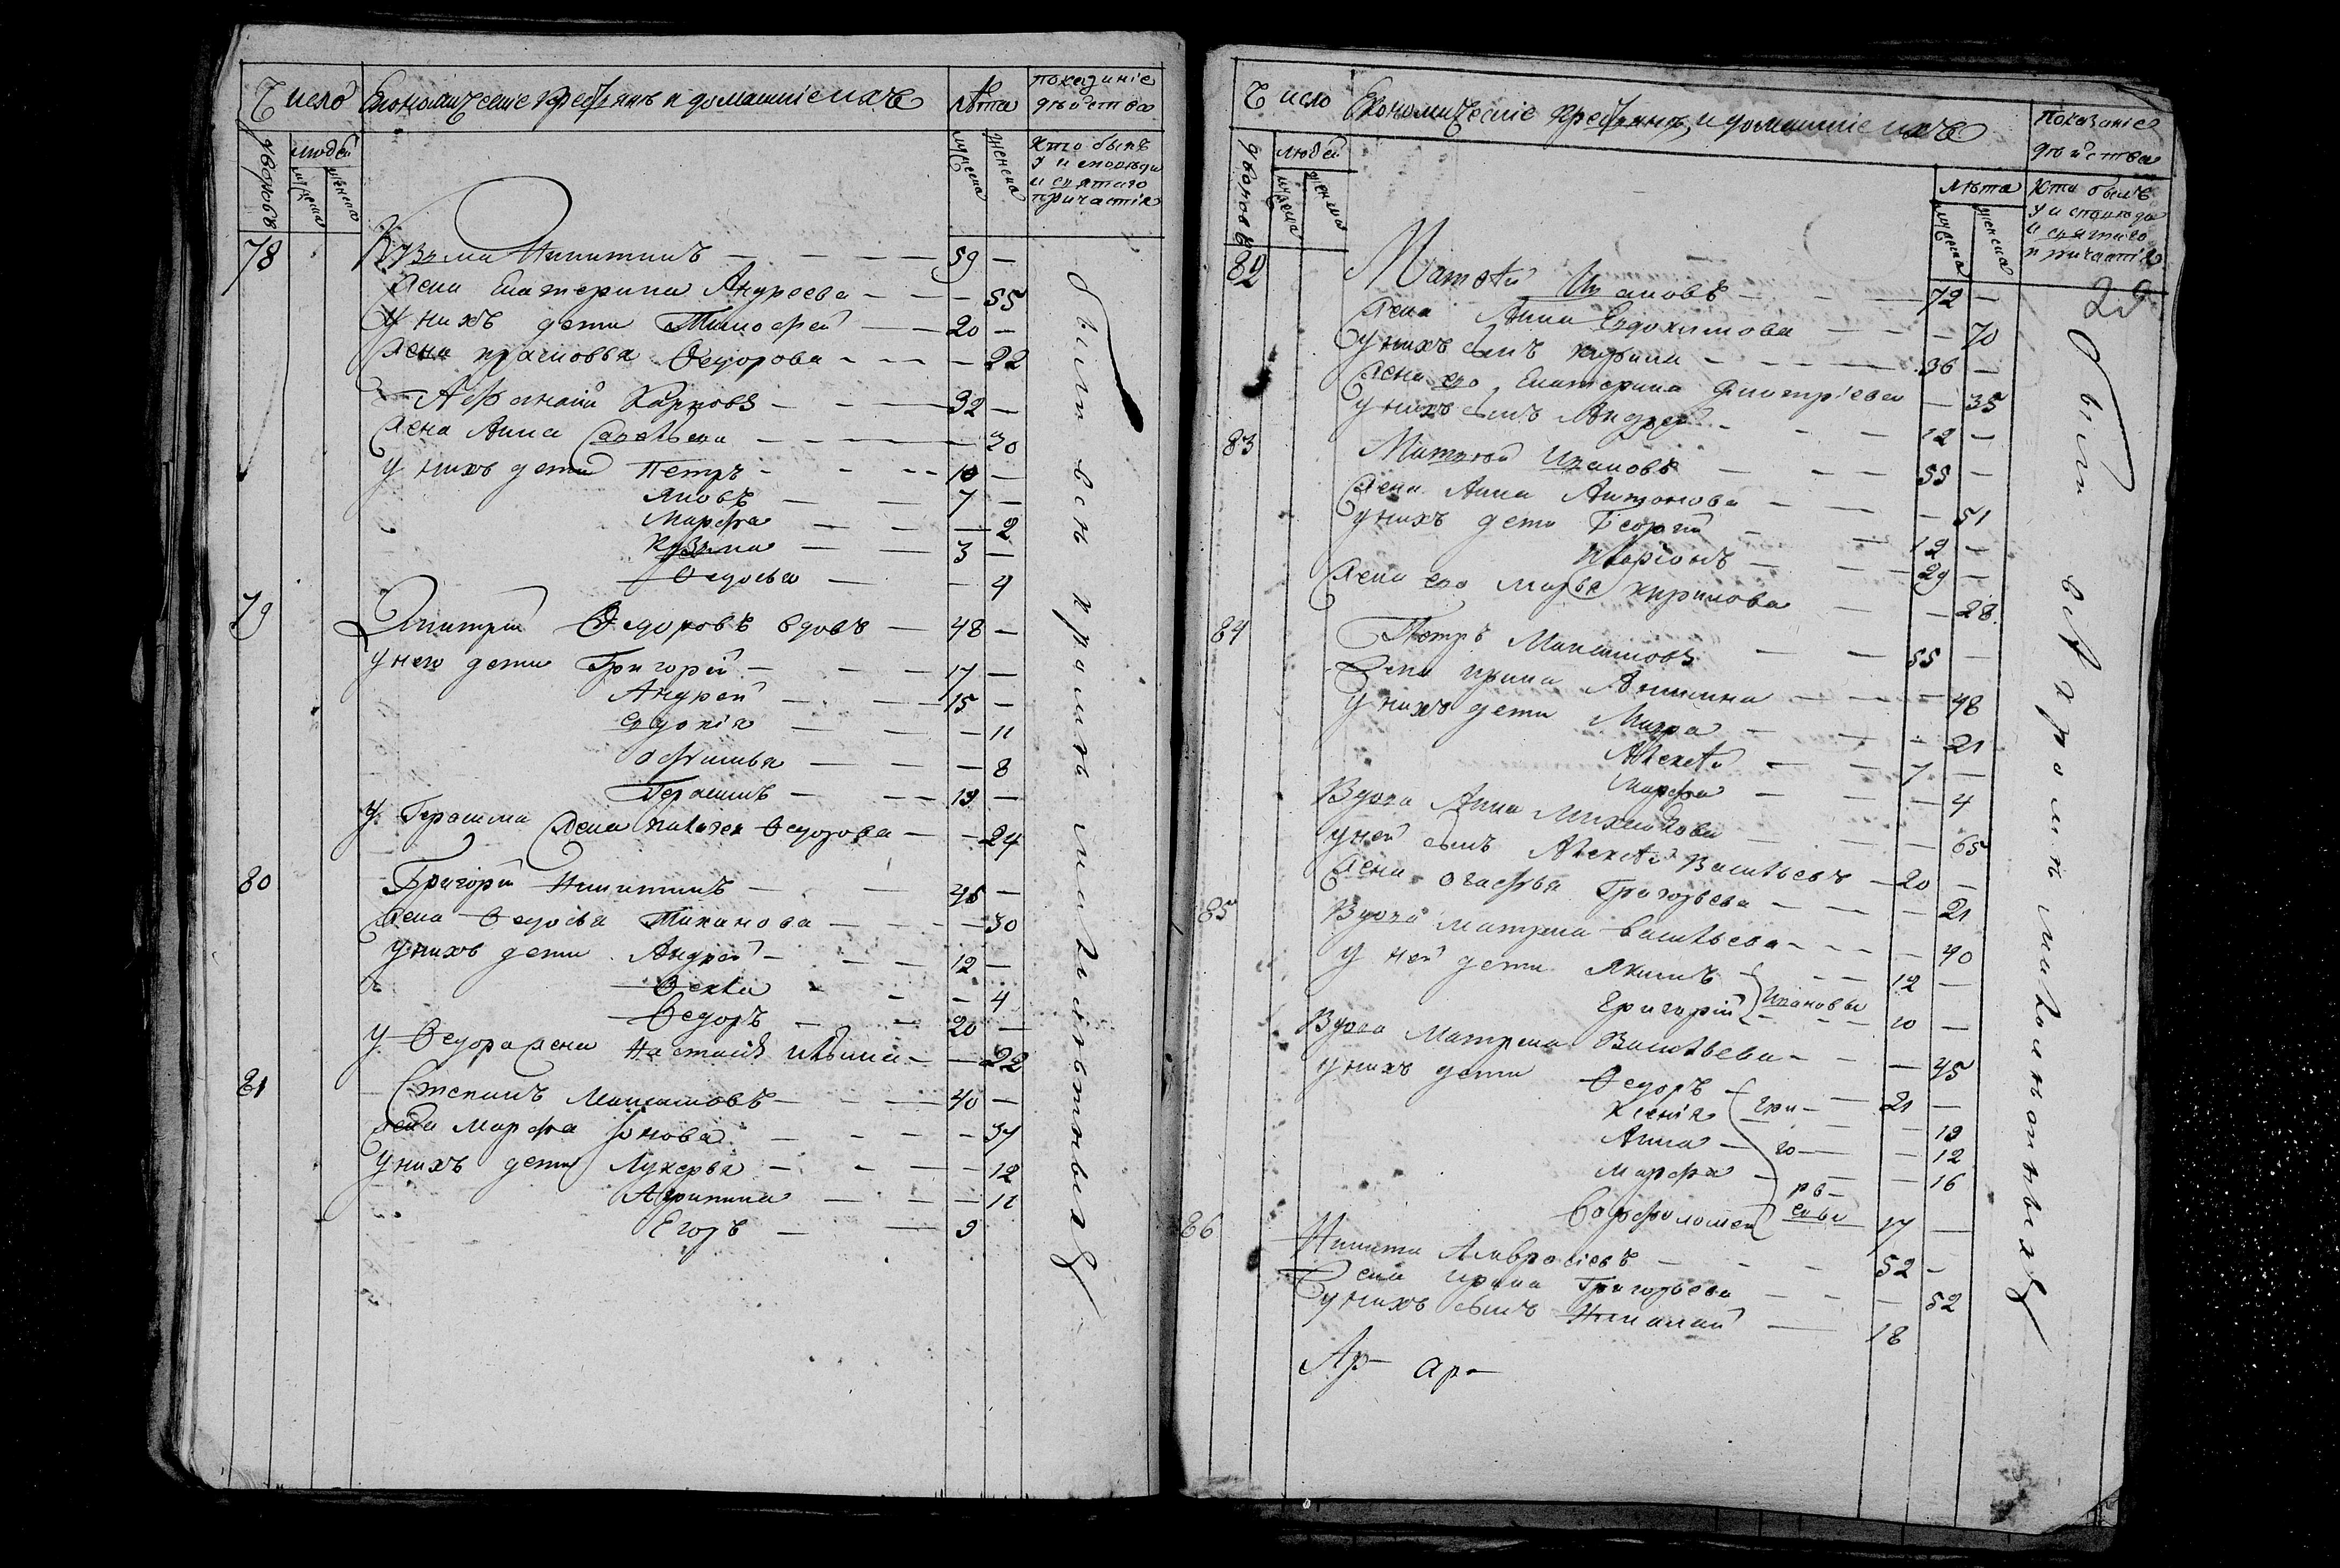 Число Економическіе крестьянъ и домашніе ихъ лѣта показаніе дѣйства
дворовъ людей мужеска женска мужеска женска кто былъ у исповѣди и святаго причастія
78 Кузьма Никитинъ 59 —
Жена Екатерина Андреева — 55
У нихъ дети Тимофей 20 —
Жена прасковья Ѳедорова — 22
Афонасій Карповъ 32 —
Жена Анна Савельева — 30
У нихъ дети Петръ 10 —
Яковъ 7 —
Марфа — 2
Кузьма 3 —
Ѳедосья — 4
79 Дмитрій Ѳедоровъ вдовъ 48 —
У него дети Григорей 17 —
Андрей 15 —
евдокія — 11
— 8
Герасимъ 19 —
У Герасима Жена Пелагея Ѳедорова — 24
80 Григорій Никитинъ 45 —
Жена Ѳедосья — 30
У нихъ дети Андрей 12 —
Ѳекла — 4
Ѳедоръ 20 —
У Ѳедора жена Настасья Ильина — 22
81 Степанъ Максимовъ 40 —
Жена Марфа — 37
У нихъ дети Лукерья — 12
Агрипина — 11
Егоръ 9
были всѣ кромѣ малолѣтныхъ
Число Економическіе крестьянъ, и домашніе ихъ Показаніе дѣйства
дворовъ людей мужеска женска лѣта мужеска женска кто былъ у исповѣди и святаго причастія
82 Матвѣй Ивановъ 72 —
Жена Анна Евдокимова — 70
У нихъ сынъ Кирила 36 —
Жена его Екатерина Дмитріева — 35
У нихъ сынъ Андрей 12 —
83 Матвѣй Ивановъ 55 —
Жена Анна Антонова — 51
У нихъ дети Георгій 12 —
Иларіонъ 29 —
Жена его Марья кирилова — 28
84 Петръ Максимовъ 55 —
Жена ирина — 48
У нихъ дети Мавра — 21
Алексѣй 7 —
Марфа — 4
Вдова Анна Михайлова — 65
У ней сынъ Алексѣй Васильевъ 20 —
Жена Григорьева — 21
85 Вдова матрена васильева — 40
У ней дети Якимъ 12 —
Григорій Ивановы 10 —
Вдова Матрена Васильева — 45
У нихъ дети Ѳедоръ гри- 21 —
Ксенія — 19
Анна го- — 12
Марфа рь- — 16
Варфоломей евы 17 —
86 Никита Амвросіевъ 52 —
Жена ирина Григорьева — 52
У нихъ сынъ Николай 18
Ар- ар-
были всѣ кромѣ малолѣтныхъ